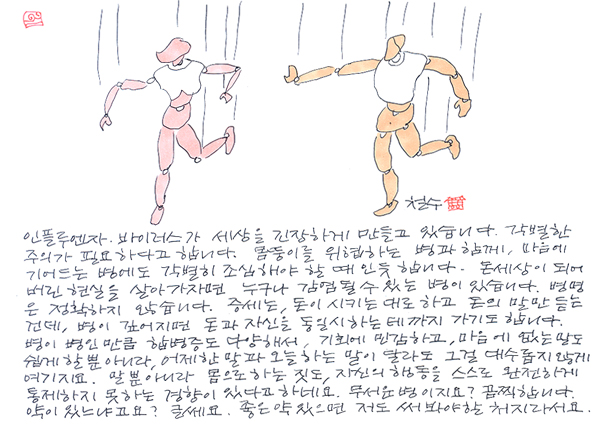 철수
인플루엔자. 바이러스가 세상을 긴장하게 만들고 있습니다. 각별한
주의가 필요하다고 합니다. 몸뚱이를 위협하는 병과 함께, 마음에
기어드는 병에도 각별히 조심해야 할 때인듯 합니다. 돈세상이 되어
버린 현실을 살아가자면 누구나 감염될 수 있는 병이 있습니다. 병명
은 정확하지 않습니다. 증세는, 돈이 시키는대로 하고 돈의 말만 듣는
건데, 병이 깊어지면 돈과 자신을 동일시하는 데까지 가기도 합니다.
병이 병인만큼 합병증도 다양해서, 기회에 민감하고, 마음에 없는 말도
쉽게 할 뿐 아니라, 어제한 말과 오늘하는 말이 달라도 그걸 대수롭지 않게
여기지요. 말뿐아니라 몸으로 하는 짓도, 자신의 행동을 스스로 완전하게
통제하지 못하는 경향이 있다고 하네요. 무서운 병이지요? 끔찍합니다.
약이 있느냐고요? 글쎄요. 좋은 약 있으면 저도 써 봐야 할 처지라서요.